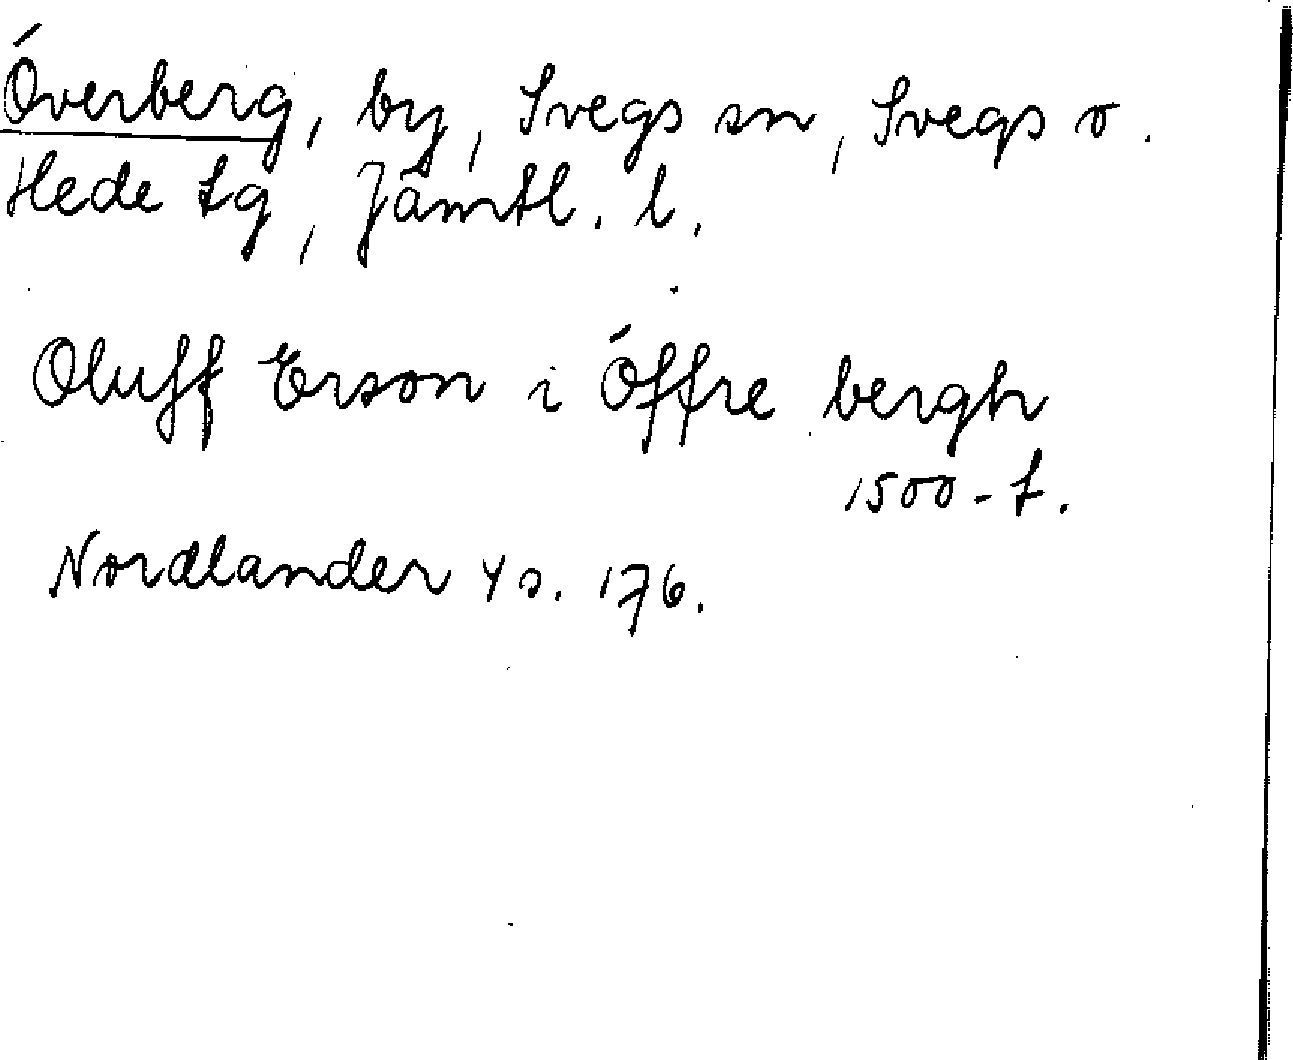 Överberg, by, Svegs sn, Svegs o.
Hede tg, Jämtl. l.
Oluff Erson i Öffre bergh
1500-t.
Nordlander 4 s. 176.